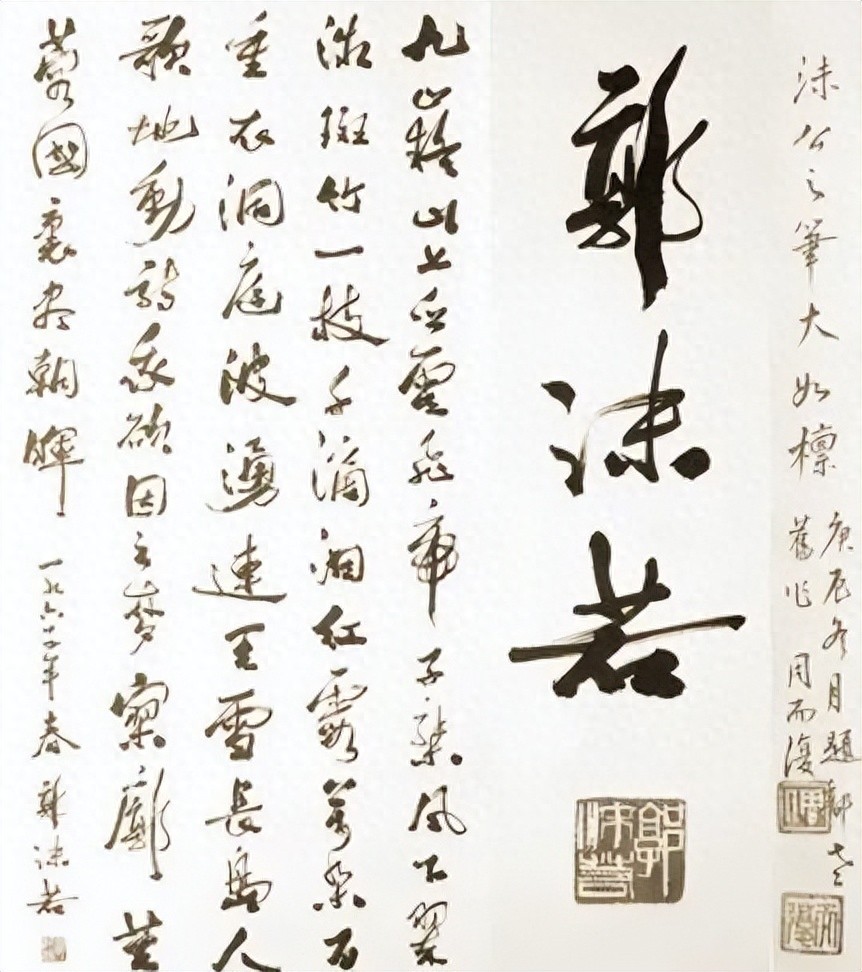 沫公之筆大如檁
庚辰冬月題郭老
舊作 周而復
郭沫若
郭沫若
九嶷山上白雲飛帝子乘風下翠
微斑竹一枝千滴泪紅霞萬朵百
重衣洞庭波湧連天雪長島人
歌地動詩我欲因之夢寥廓芙
蓉國裏盡朝暉 年春 郭沫若